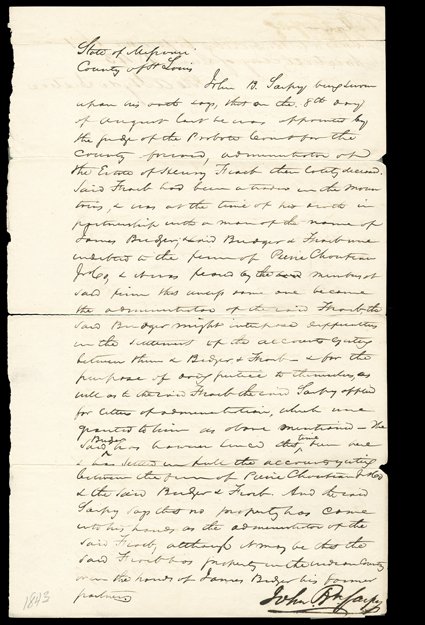 State of Missouri
County of St Louis
John B. Sarpy being sworn
upon his oath says, that on the 8th day
of August last he was appointed by
the judge of the Probate Court for the
County foresaid, administrator of
the Estate of Henry Fraeb then lately deceased.
Said Fraeb had been a trader in the Moun
tains, & was at the time of his death in
partnership with a man of the name of
James Bridger, & said Bridger & Fraeb were
indebted to the firm of Pierre Chouteau
Jr & Co, & it was feared by the members of
said firm that unless some one became
the administrator of the said Fraeb, the
said Bridger might interpose difficulties
in the settlement of the accounts existing
between them & Bridger & Fraeb — & for the
purpose of doing justice to themselves, as
well as to the said Fraeb the said Sarpy applied
for letters of administration, which were
granted to him as above mentioned — The
said Bridger has however since that time
& has settled in full the accounts existing
between the firm of Pierre Chouteau Jr & Co
& the said Bridger & Fraeb. And the said
Sarpy says that no property has come
into his hands as the administrator of the
said Fraeb, although it may be that the
said Fraeb has property in the Indian Country
or in the hands of James Bridger his former
partner.
John B. Sarpy
1843